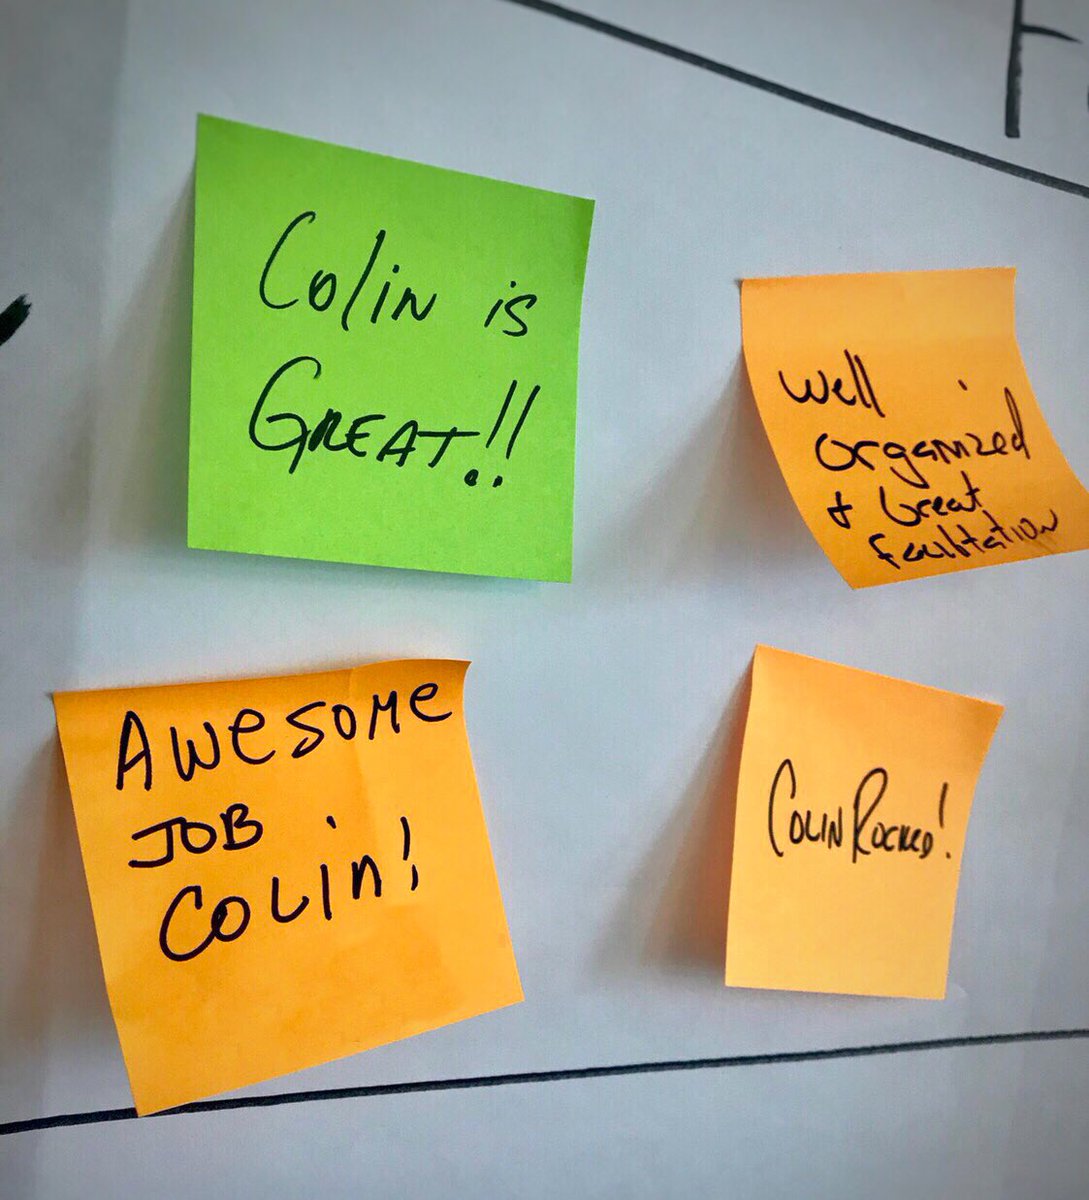 Colin is
GREAT!!
Well
organized
& Great
facilitation
AWESOME
JOB
COLIN!
COLIN ROCKED!